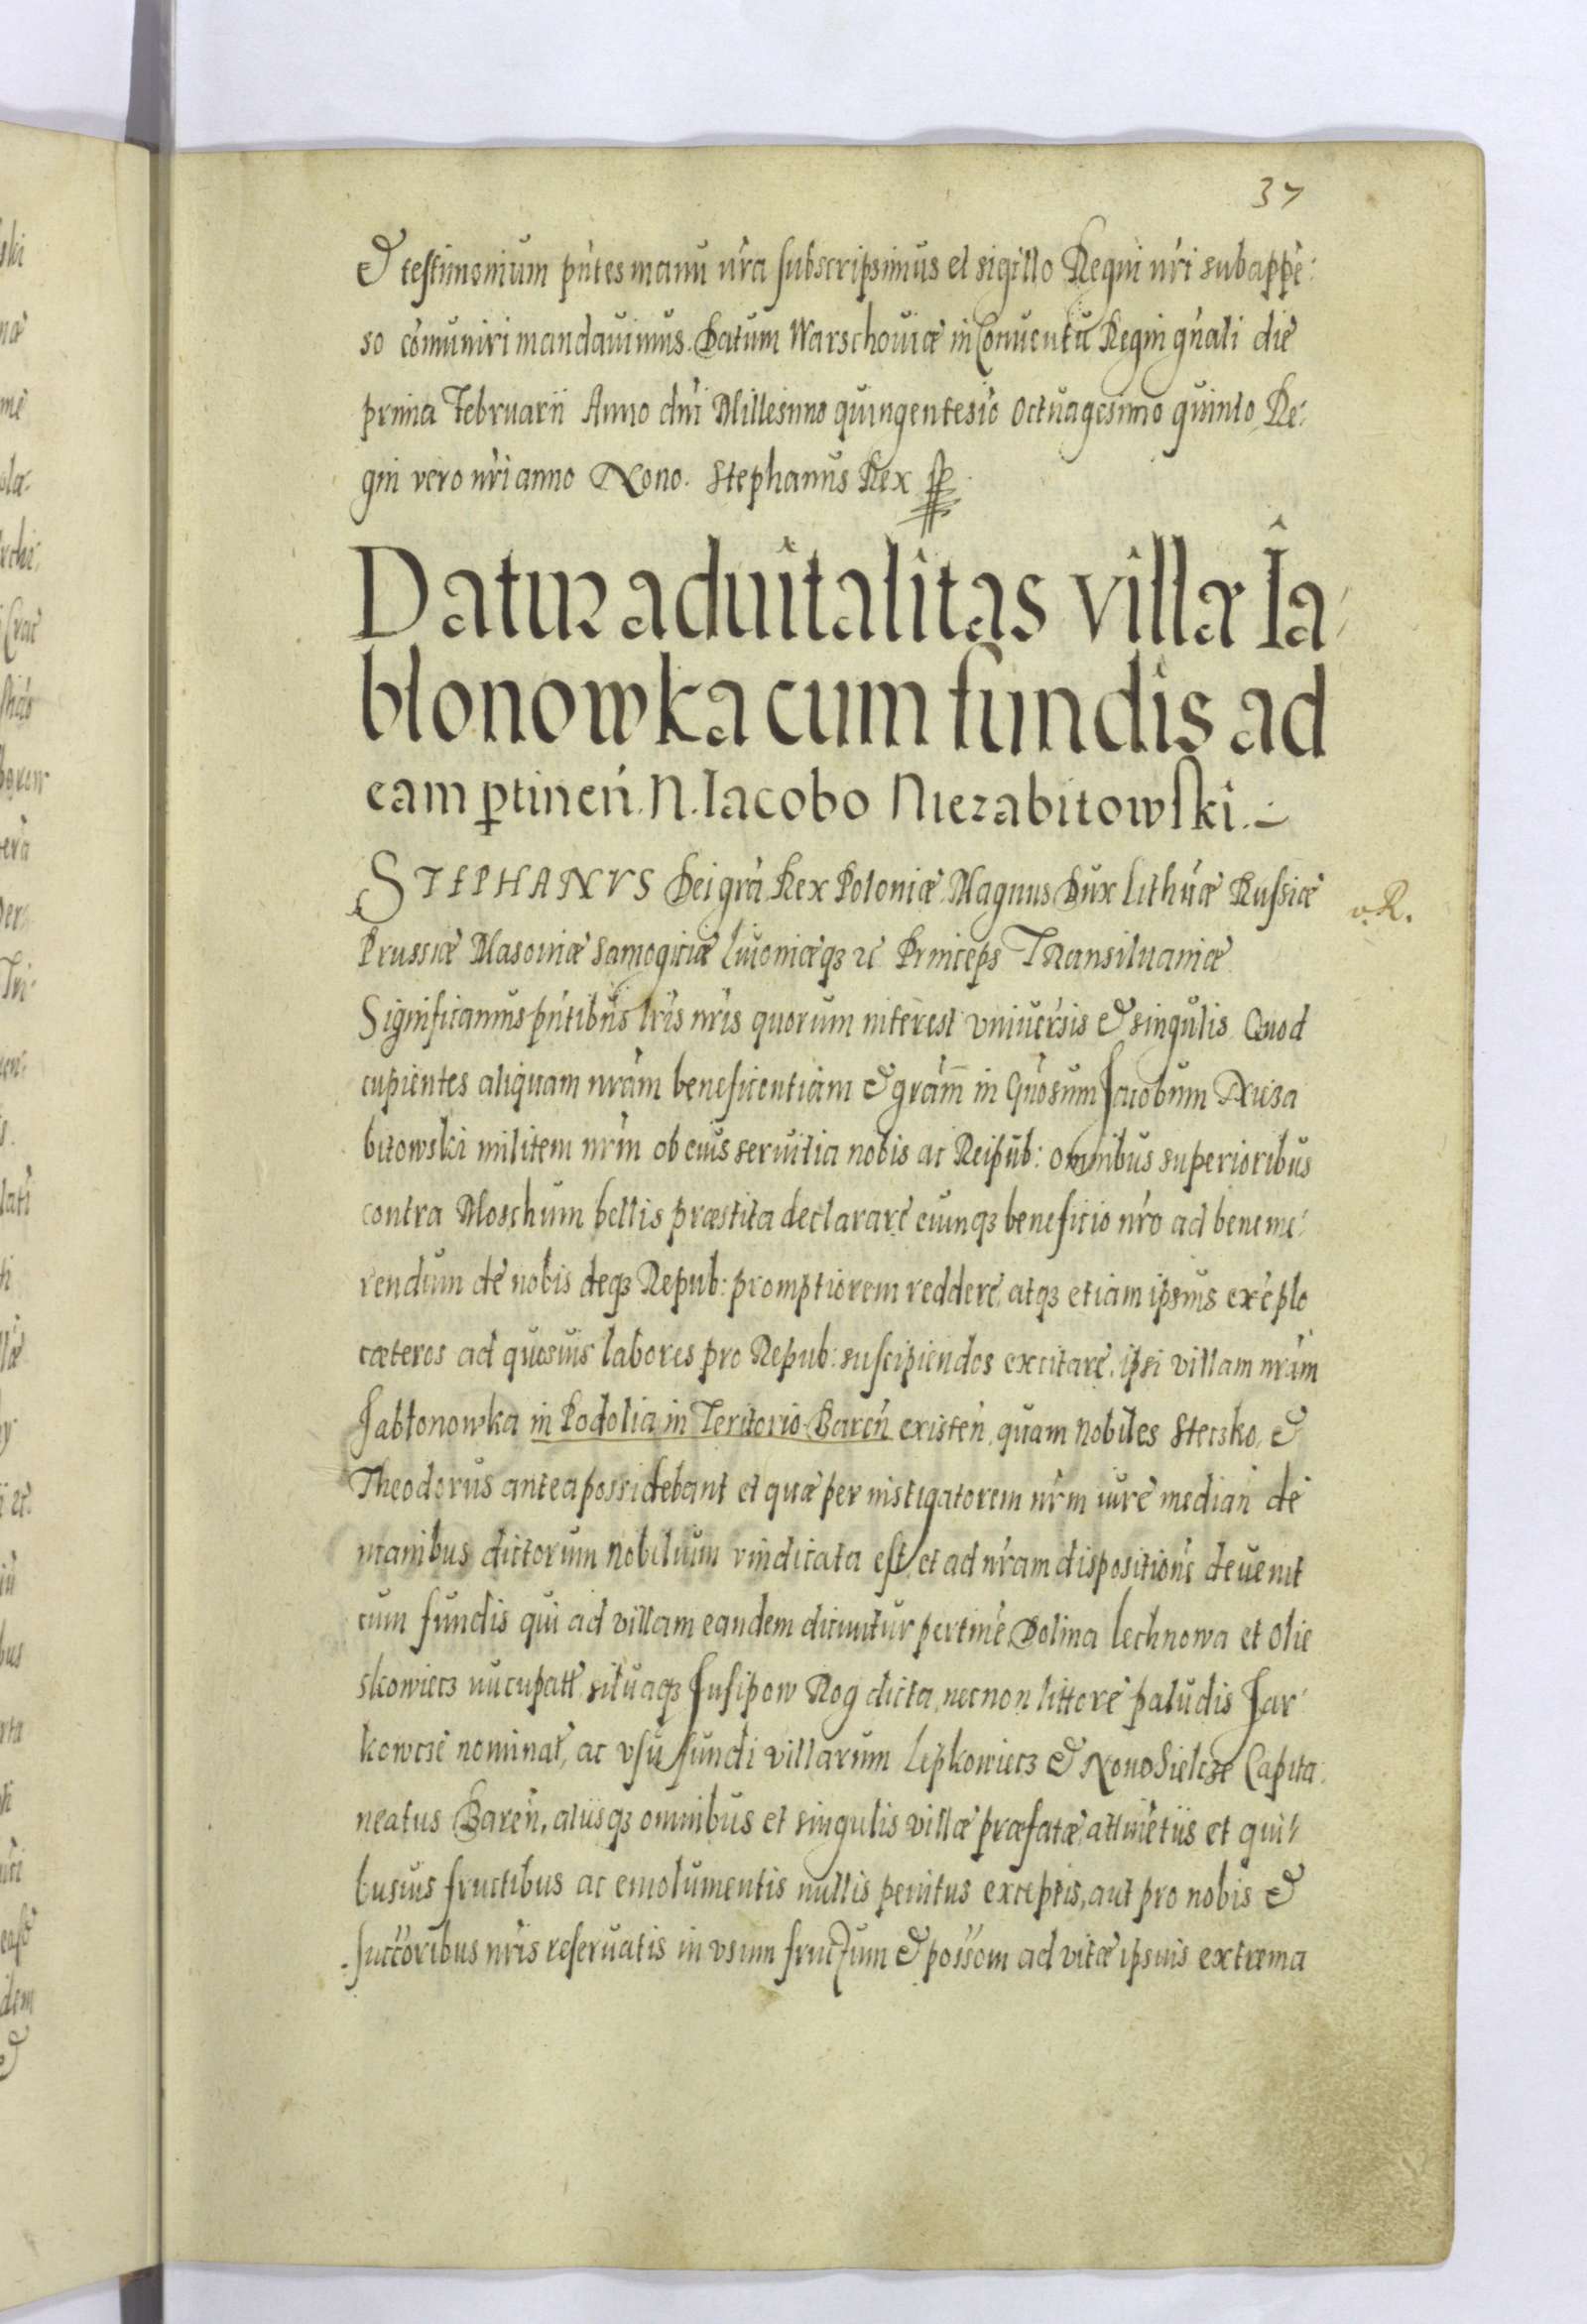 37
& testimonium pn̄tes manu nr̄a subscripsimus et sigillo Regni nr̄i subappē:
so cōmuniri mandauimus. Datum Warschouiæ in Conuentu Regni gn̄ali die
prima Februarii Anno dn̄i Millesimo quingentesīo octuagesimo quinto, Re:
gni vero nr̄i anno Nono. Stephanus Rex
Datur aduitalitas villæ Ia:
blonowka cum fundis ad
eam ꝑtineń. N. Iacobo Niezabitowski.
STEPHANVS Dei gr̄a Rex Poloniæ Magnus Dux Lithuæ Russiæ
v. R.
Prussiæ Masouiæ Samogitiæ Liuoniæqꝫ ꝛc̄ Princeps Transiluaniæ
Significamus pn̄tibus lr̄is nr̄is quorum interest vniuersis & singulis. Quod
cupientes aliquam nr̄am beneficentiam & grām̄ in Gn̄osum Jacobum Nieza
bitowski militem nr̄m ob eius seruitia nobis ac Reipub: omnibus superioribus
contra Moschum bellis præstita declarare eumqꝫ beneficio nr̄o ad beneme:
rendum de nobis deqꝫ Repub: promptiorem reddere, atqꝫ etiam ipsius exēplo
cæteros ad quosuis labores pro Repub: suscipiendos excitare, ipsi villam nr̄am
Jablonowka in Podolia in Teritorio Bareń existeń, quam Nobiles Steczko, &
Theodorus antea possidebant et quæ per instigatorem nr̄m iure mediań de
manibus dictorum Nobilium vindicata est, et ad nr̄am dispositionē deuenit
cum fundis qui ad villam eandem dicuntur pertinē. Dolina Lechnowa et Olie
skowiecz nucupatł, situaqꝫ Jusipow Rog dicta, necnon littore paludis Jar:
kowcze nominat̄, ac vsu fundi villarum Lepkowiecz & Nouosielcze Capita:
neatus Bareń, aliisqꝫ omnibus et singulis villæ præfatæ attinētiis et qui:
busuis fructibus ac emolumentis nullis penitus exceptis, aut pro nobis &
succ̄oribus nr̄is reseruatis in vsum fructum & poss̄om ad vitæ ipsius extrema